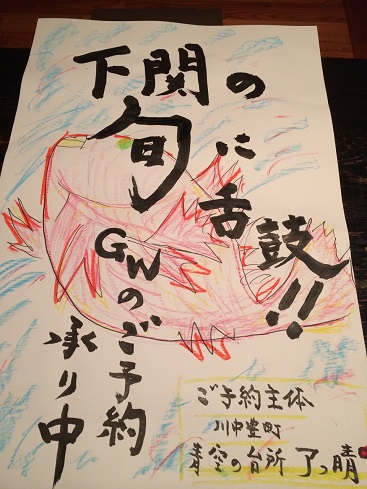 下関の
旬に
舌鼓!!
GWのご予約
承り中
ご予約主体
川中豊町
青空の台所 了っ晴